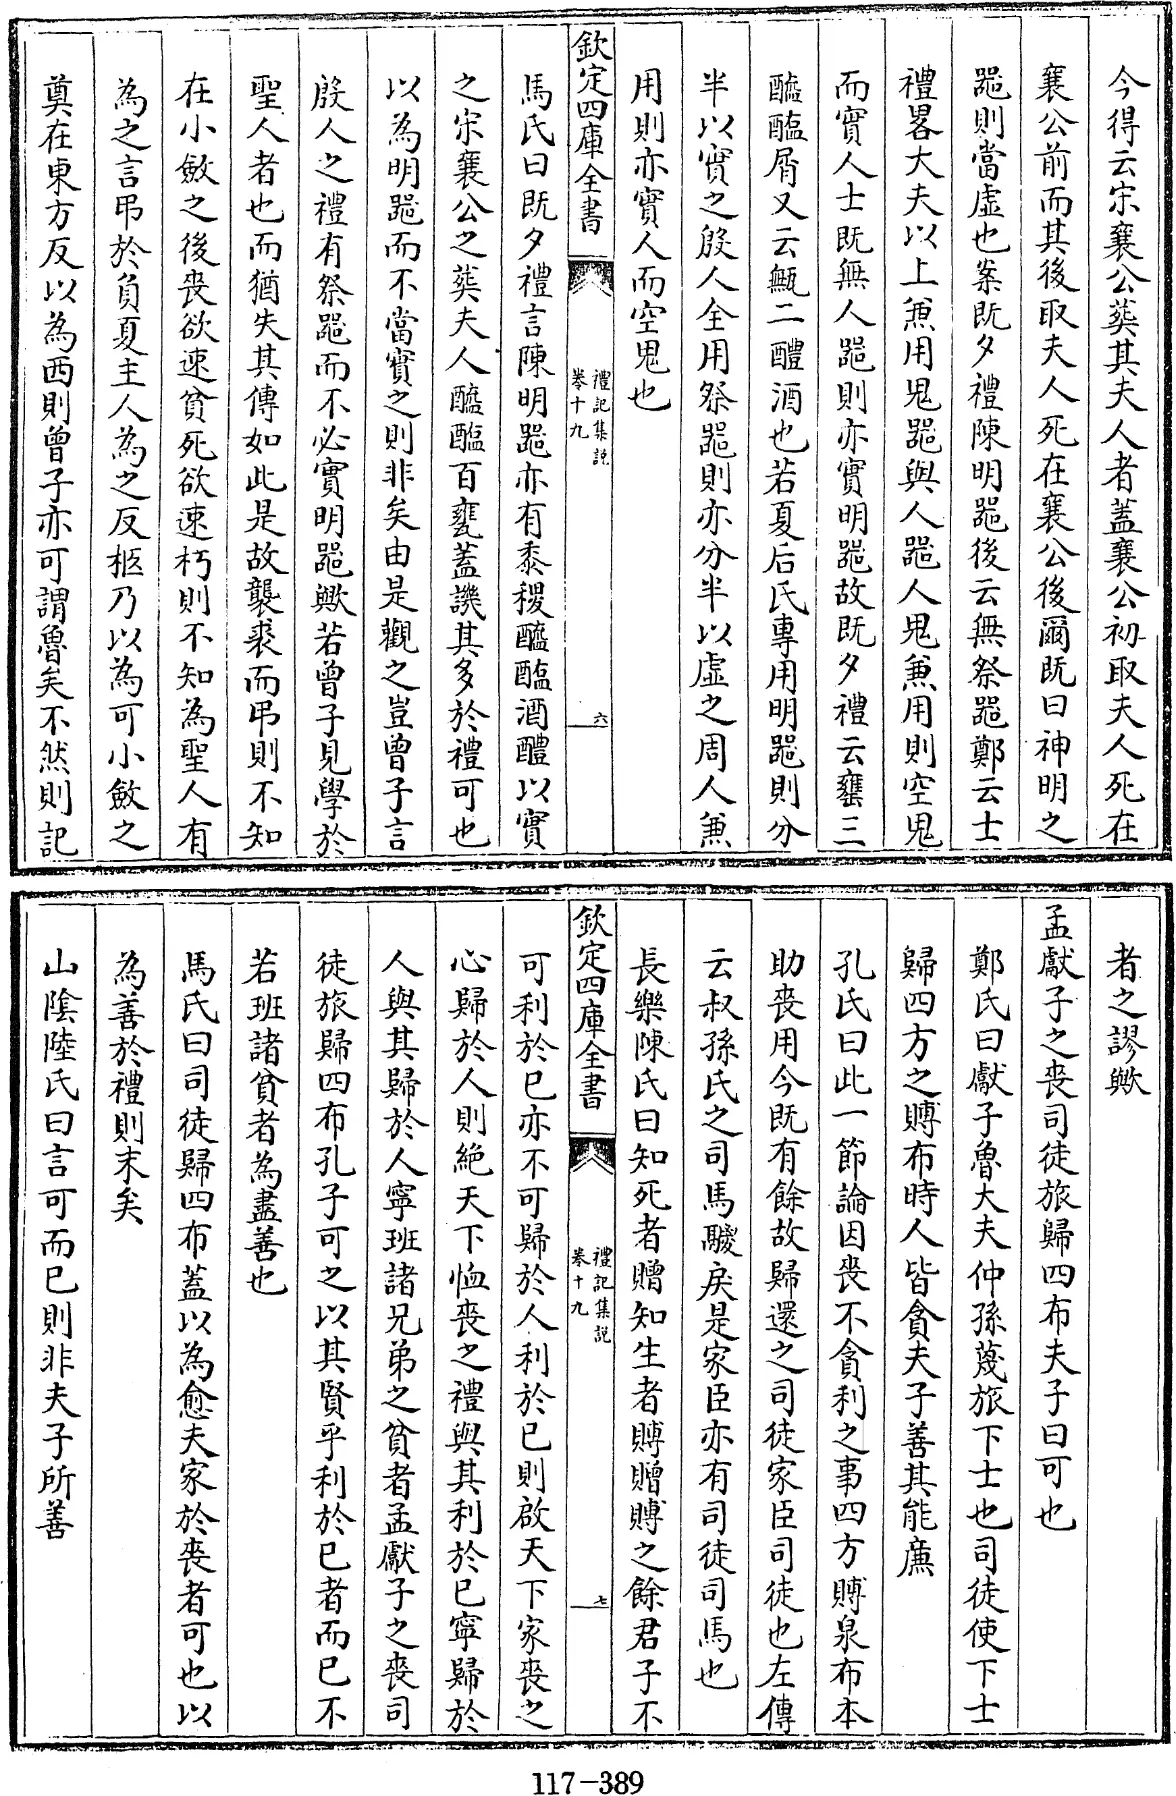 今得云宋襄公葬其夫人者蓋襄公初取夫人死在
襄公前而其後取夫人死在襄公後爾既曰神明之
噐則當虛也案既夕禮陳明噐後云無祭噐鄭云士
禮畧大夫以上兼用鬼噐與人噐人鬼兼用則空鬼
而實人士既無人噐則亦實明噐故既夕禮云罋三
醯醢屑又云甒二醴酒也若夏后氏專用明噐則分
半以實之殷人全用祭噐則亦分半以虛之周人兼
用則亦實人而空鬼也
欽定四庫全書
禮記集說
卷十九
六
馬氏曰既夕禮言陳明噐亦有黍稷醯醢酒醴以實
之宋襄公之葬夫人醯醢百甕蓋譏其多於禮可也
以為明噐而不當實之則非矣由是觀之豈曾子言
殷人之禮有祭噐而不必實明噐歟若曾子見學於
聖人者也而猶失其傳如此是故襲裘而弔則不知
在小斂之後喪欲速貧死欲速朽則不知為聖人有
為之言弔於負夏主人為之反柩乃以為可小斂之
奠在東方反以為西則曾子亦可謂魯矣不然則記
者之謬歟
孟獻子之喪司徒旅歸四布夫子曰可也
鄭氏曰獻子魯大夫仲孫蔑旅下士也司徒使下士
歸四方之賻布時人皆貪夫子善其能廉
孔氏曰此一節論因喪不貪利之事四方賻泉布本
助喪用今既有餘故歸還之司徒家臣司徒也左傳
云叔孫氏之司馬鬷戾是家臣亦有司徒司馬也
長樂陳氏曰知死者贈知生者賻贈賻之餘君子不
欽定四庫全書
禮記集說
卷十九
七
可利於已亦不可歸於人利於已則啟天下家喪之
心歸於人則絕天下恤喪之禮與其利於已寧歸於
人與其歸於人寧班諸兄弟之貧者孟獻子之喪司
徒旅歸四布孔子可之以其賢乎利於已者而已不
若班諸貧者為盡善也
馬氏曰司徒歸四布蓋以為愈夫家於喪者可也以
為善於禮則末矣
山陰陸氏曰言可而已則非夫子所善
117-389